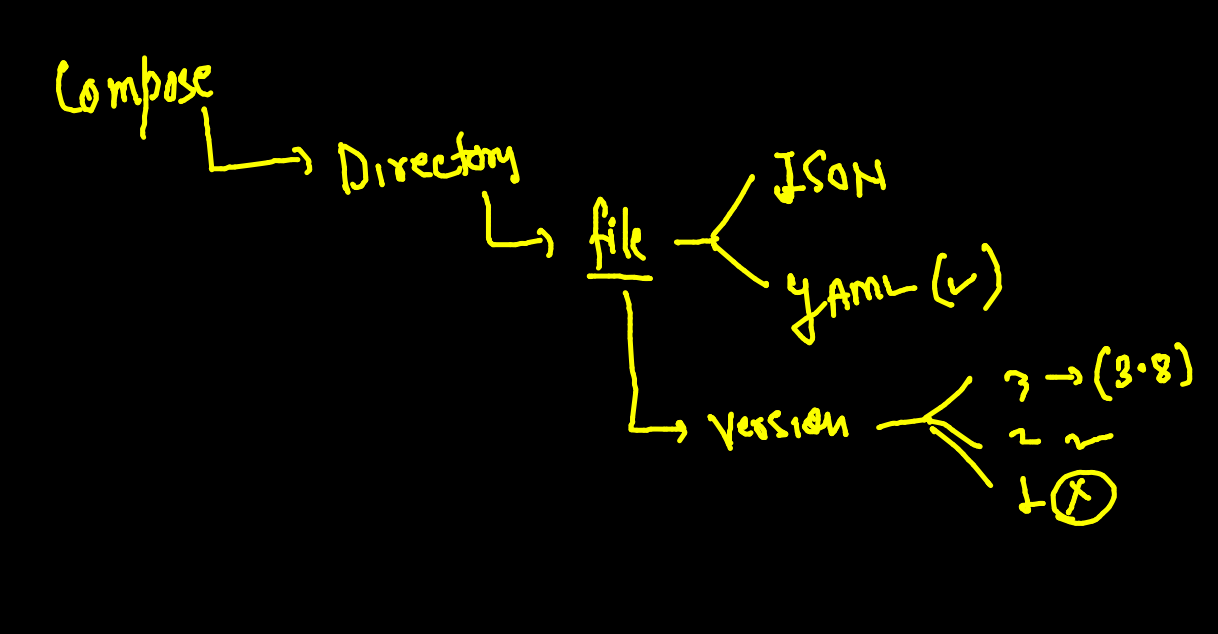 Compose
Directory
file
JSON
YAML (✓)
version
3 → (3.8)
2 ✓
1 ⓧ